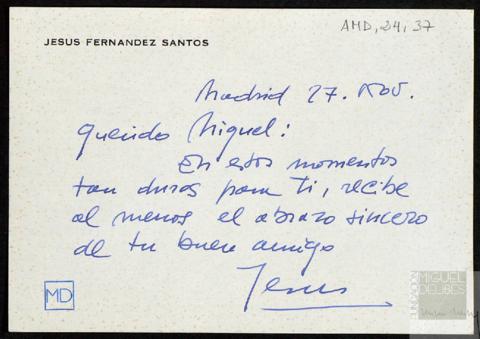 AMD, 24, 37
JESUS FERNANDEZ SANTOS
Madrid 27. Nov.
Querido Miguel:
En estos momentos
tan duros para ti, recibe
al menos el abrazo sincero
de tu buen amigo
Jesus
MD
FUNDACIÓN
MIGUEL
DELIBES